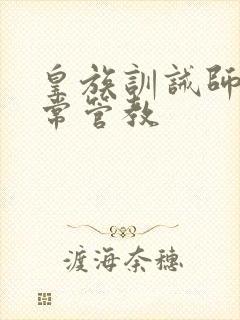 皇族訓誡師
常管教
渡海奈穗